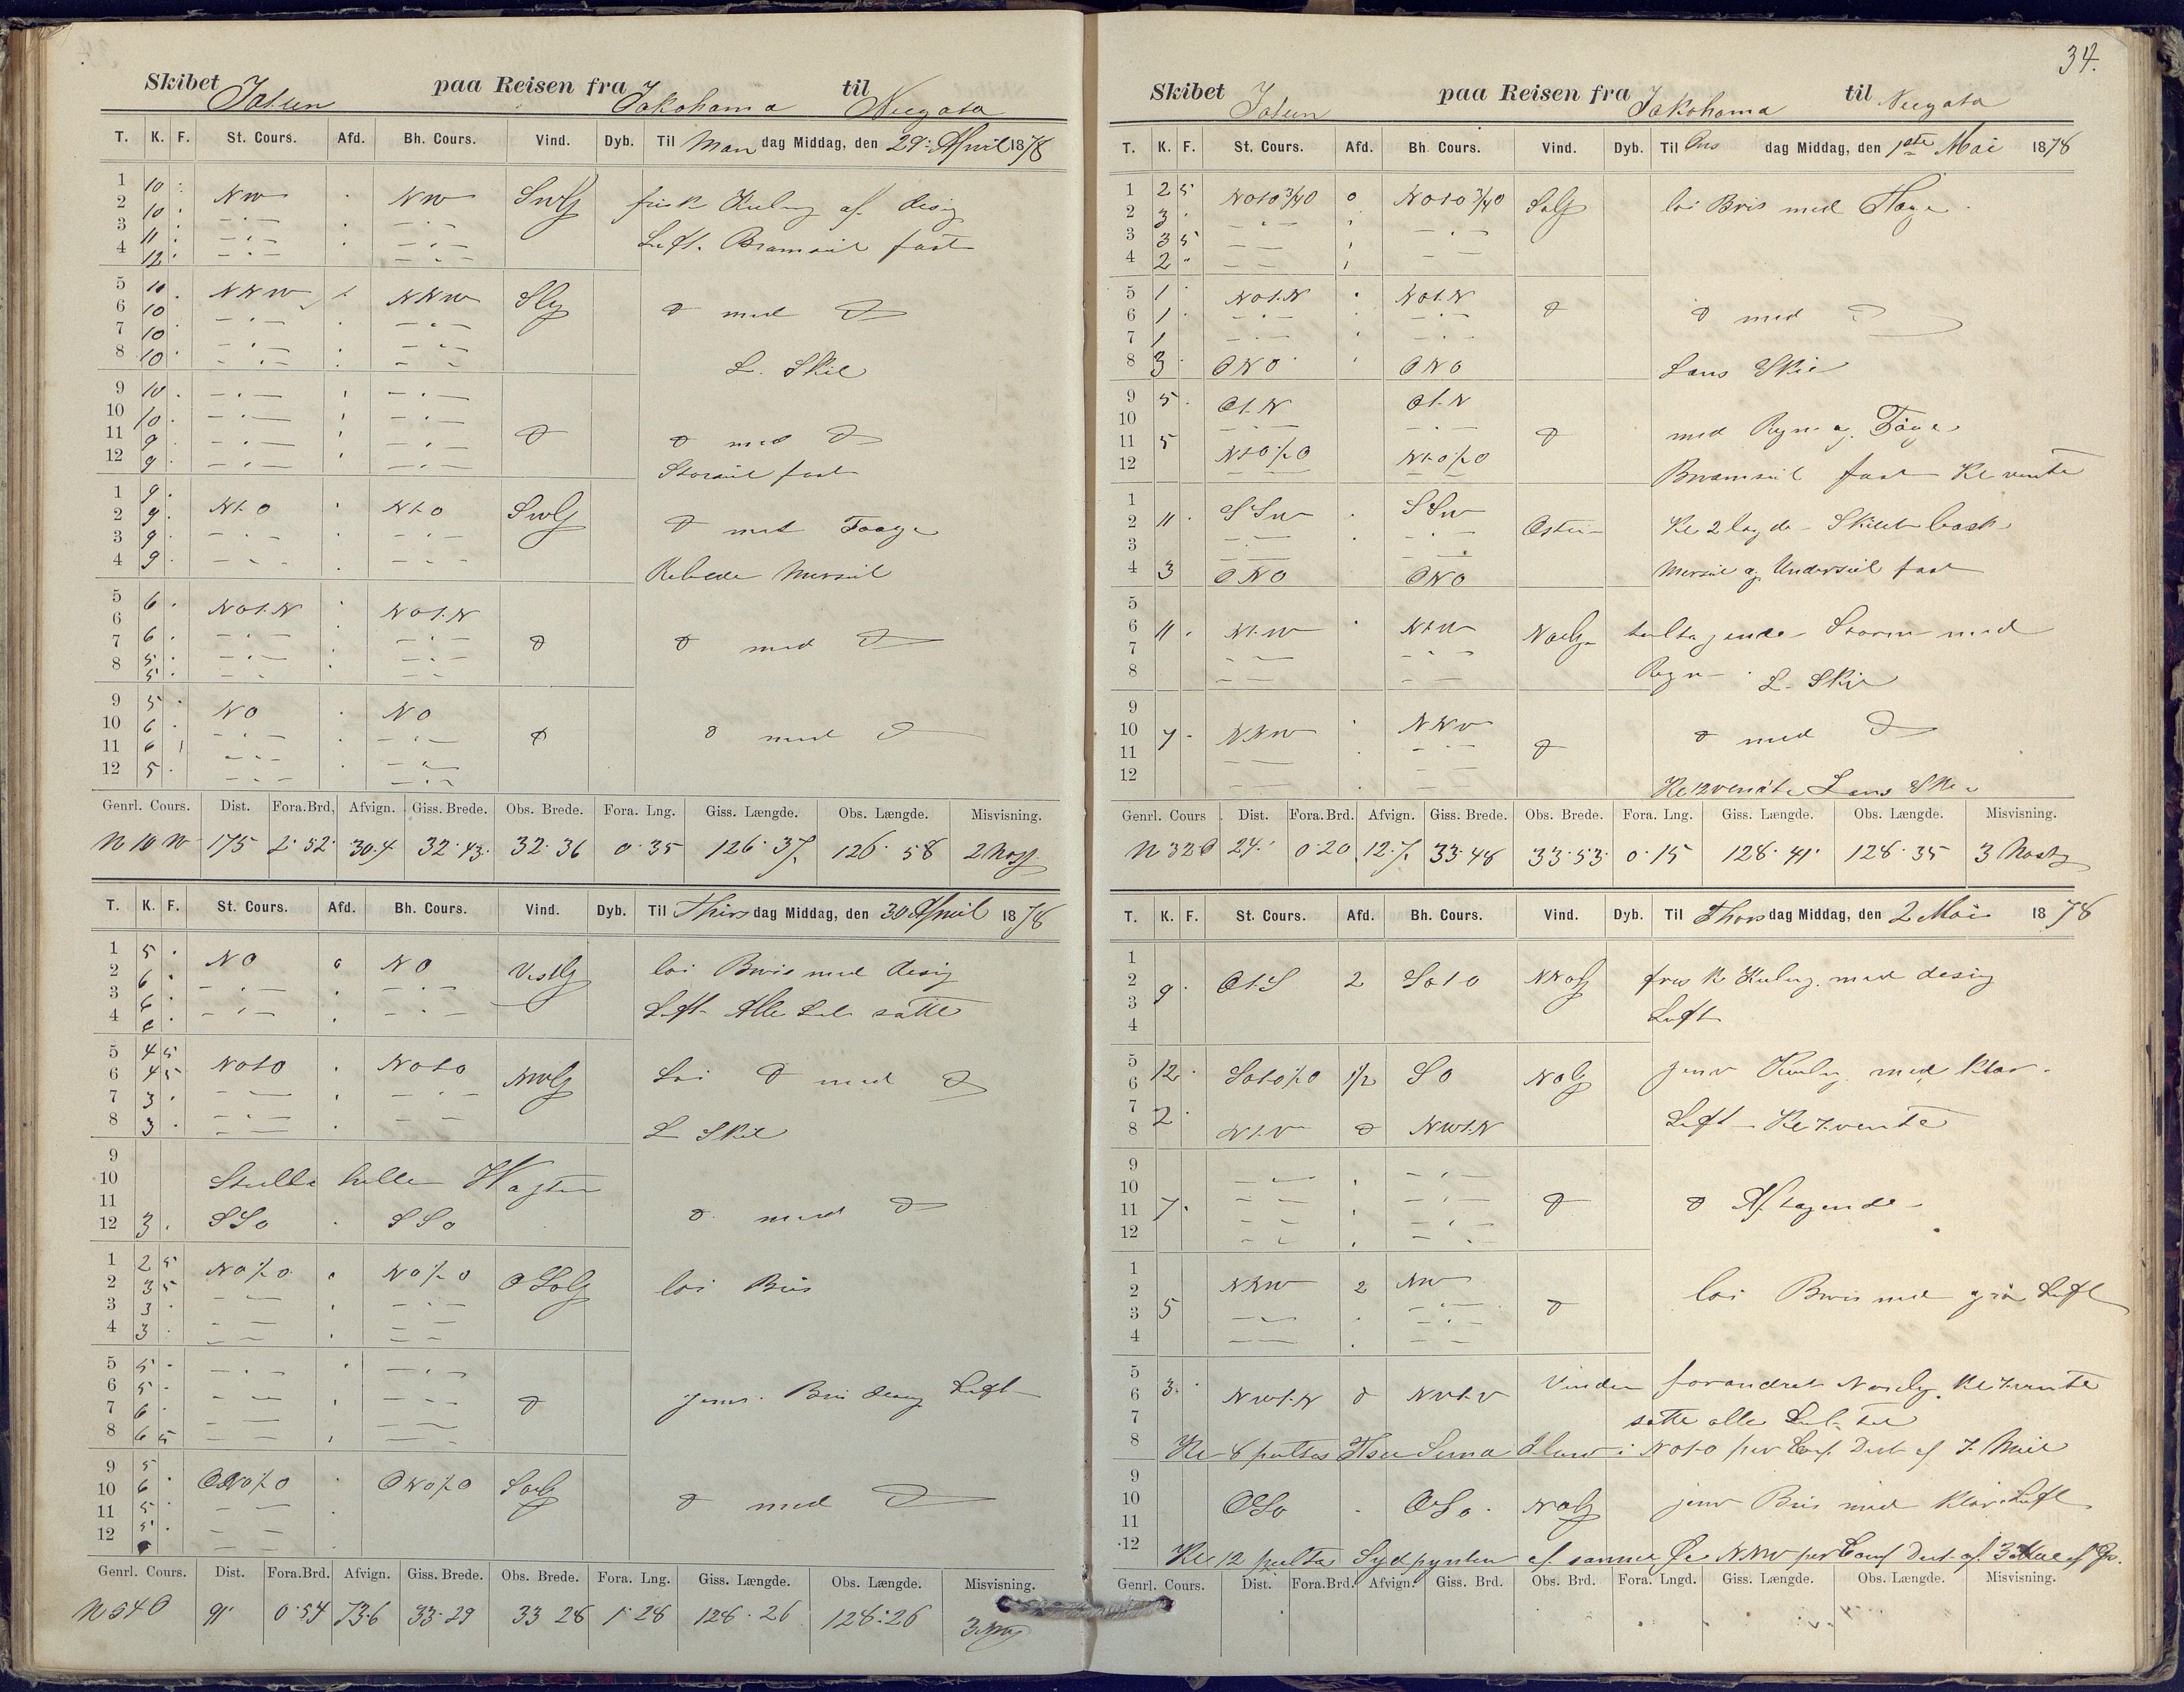 Skibet Jotun paa Reisen fra Jokohama til Neegata
T. K. F. St. Cours. Afd. Bh. Cours. Vind. Dyb. Til Man dag Middag, den 29. April 1878
1 10 NW NW SWlg frisk Kuling af disig
2 10
3 11 Luft. Bramseil fast
4 12
5 10 NNW NNW Slg
6 10 d med d
7 10
8 10 L. Skil
9 10
10 10
11 9 d d med d
12 9 Storseil fast
1 9
2 9 NtO NtO SWlg d med Taage
3 9
4 9 Rebede Merseil
5 6 NOt.N NOt.N
6 6
7 5 d d med d
8 5
9 5 NO NO
10 6 d d med d
11 6
12 5
Genrl. Cours. Dist. Fora.Brd. Afvign. Giss. Brede. Obs. Brede. Fora. Lng. Giss. Længde. Obs. Længde. Misvisning.
N 10 W 175 2° 52 30.4 32° 43 32° 36 0° 35 126° 37 126° 58 2 
T. K. F. St. Cours. Afd. Bh. Cours. Vind. Dyb. Til Thirs dag Middag, den 30 April 1878
1 5 NO NO Vestlg loi Bris med disig
2 6
3 6 Luft Alle Seil satte
4 6
5 4 5 NOtO NOtO NWlg Loi d med d
6 4 5
7 3
8 3 L Skil
9
10 Stille hele Vagten
11 d med d
12 3 SSO SSO
1 2 5 NO½O NO½O OSOlg loi Bris
2 3 5
3 3
4 3
5 5
6 5 d jevn Bris disig Luft
7 6
8 6 5
9 5
10 6 ONO½O ONO½O SOlg d med d
11 5
12 5
Genrl. Cours. Dist. Fora.Brd. Afvign. Giss. Brede. Obs. Brede. Fora. Lng. Giss. Længde. Obs. Længde. Misvisning.
N 54 O 91 0° 54 73.6 33° 29 33 28 1° 28 128° 26 128° 26 3
34.
Skibet Jotun paa Reisen fra Jakohama til Neegata
T. K. F. St. Cours. Afd. Bh. Cours. Vind. Dyb. Til Ons dag Middag, den 1ste Mai 1878
1 2 5 NOtO¾O 0 NOtO¾O SOlg loi Bris med Tage
2 3
3 3 5
4 2
5 1 NOt.N NOt.N d d med d
6 1
7 1
8 3 ONO ONO Lans Skil
9 5 Ot.N Ot.N
10
11 5 d med Regn og Tåge
12 NtO½O NtO½O Bramseil fast Kl vente
1 SSW SSW
2 11 Osten Kl 2 lagde Skibet bak
3
4 3 ONO ONO Merseil og Underseil fast
5
6 11 Nt.W NtW NOlg tiltagende Storm med
7
8 Regn L. Skil
9
10 7 NNW NNW d med d
11 d
12 Kl 12 vendte Lans Skil
Genrl. Cours. Dist. Fora.Brd. Afvign. Giss. Brede. Obs. Brede. Fora. Lng. Giss. Længde. Obs. Længde. Misvisning.
N 32 O 24 0° 20 12.7 33° 48 33° 53 0° 15 128° 41 128° 35 3
T. K. F. St. Cours. Afd. Bh. Cours. Vind. Dyb. Til Thors dag Middag, den 2 Mai 1878
1
2 9 OtS 2 SOtO NNOlg frisk Kuling med disig
3
4 Luft
5
6 12 SOtO½O 1/2 SO NOlg jevn Kuling med klar
7 2
8 Nt.W d NWt.N Luft Kl 7 vente
9
10
11 7 d d Aftagende
12
1
2 NNW 2 NW loi Bris med grå Luft
3 5 d
4
5
6 3 NWt.N d NWt.W Vinden forandret Nordlg. Kl 7 vente
7 satte alle Seil til
8 Kl 8 peiltes Tsu Sima Iland i NOtO per Comp. Dist af 7. Mil
9
10 OSO OSO NOlg jevn Bris med klar Luft
11
12 Kl 12 peiltes Sydpynten af samme Øe NNW per Comp Dist. af 3 Mil
Genrl. Cours. Dist. Fora.Brd. Afvign. Giss. Brd. Obs. Brd. Fora. Lngd. Giss. Længde. Obs. Længde. Misvisning.